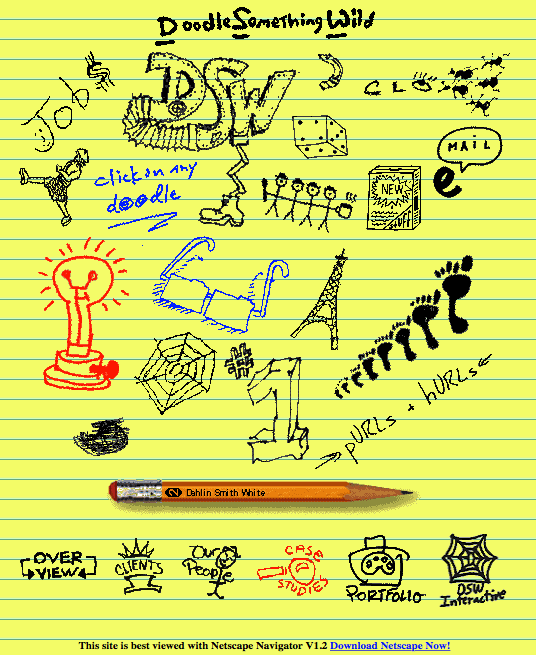 Doodle Something Wild
Job$
DSW
CLO
MAIL
e
click on any
doodle
NEW
OFF
#1
pURLs + hURLs
2 Dahlin Smith White
OVER
VIEW
CLIENTS
Our
People
CASE
STUDIES
PORTFOLIO
DSW
Interactive
This site is best viewed with Netscape Navigator V1.2 Download Netscape Now!